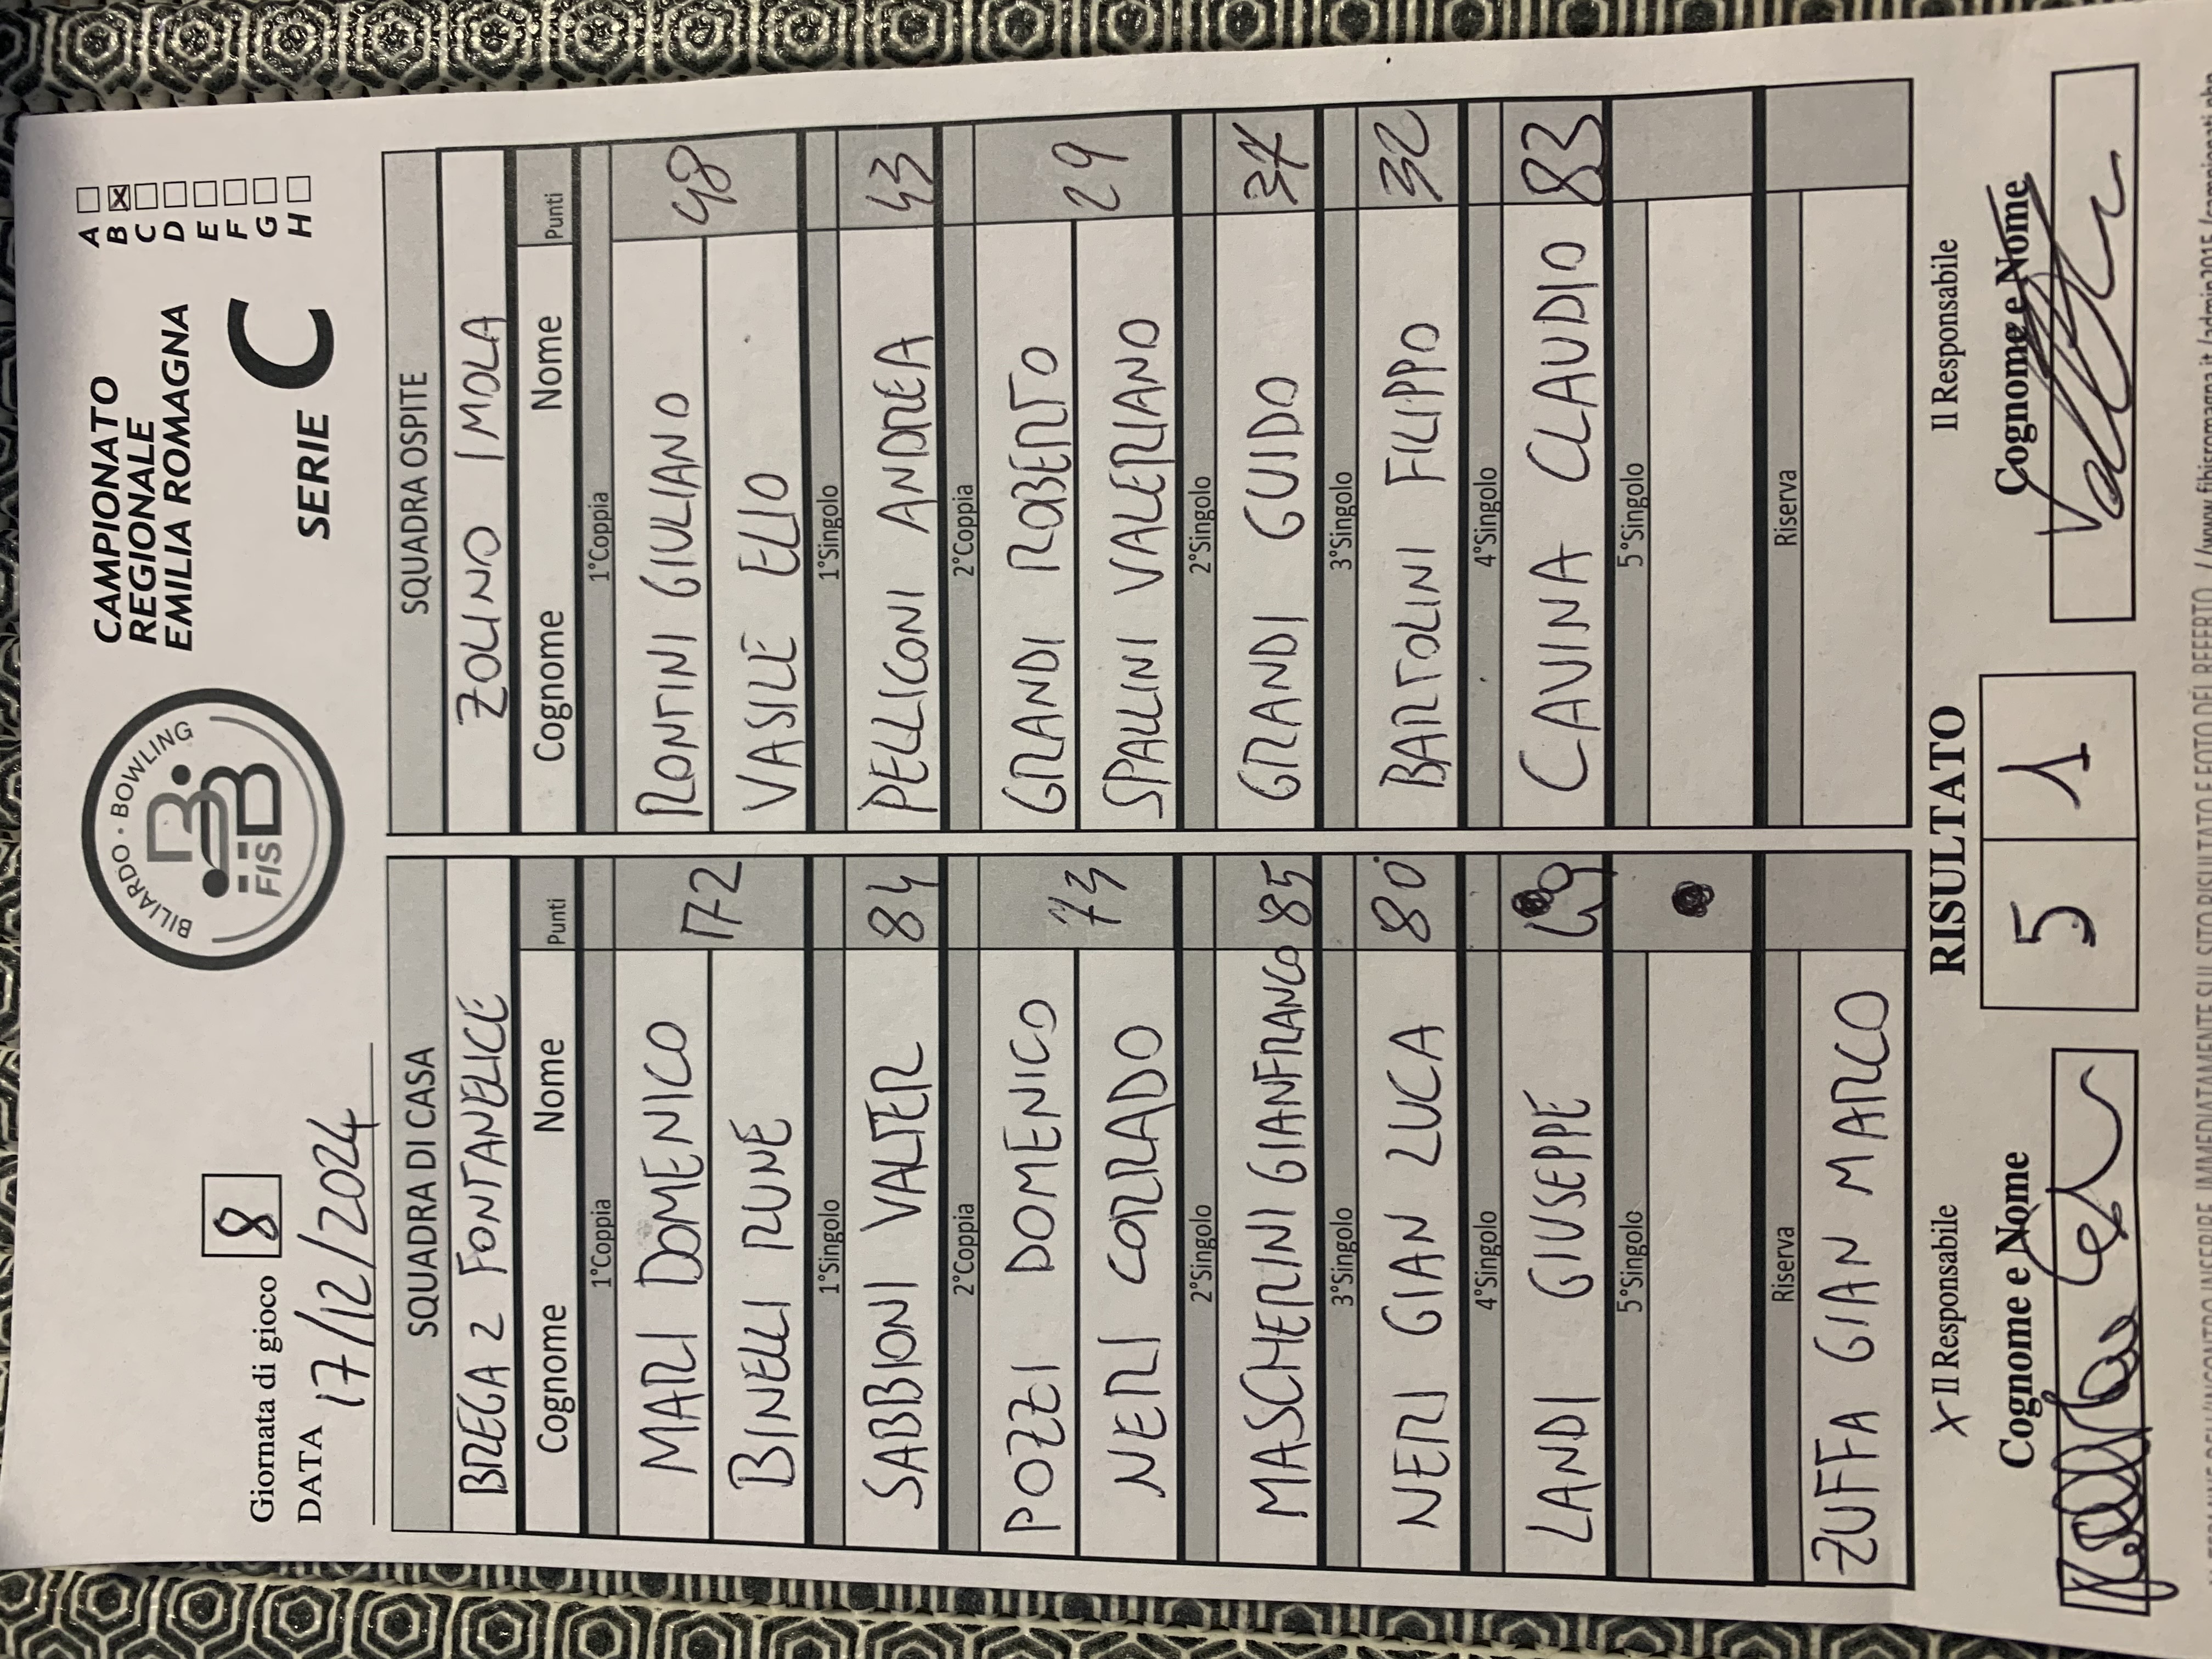 BILIARDO · BOWLING
FISBB
CAMPIONATO
REGIONALE
EMILIA ROMAGNA
SERIE C
A
B X
C
D
E
F
G
H
Giornata di gioco 8
DATA 17/12/2024
SQUADRA DI CASA SQUADRA OSPITE
BREGA 2 FONTANELICE ZOLINO IMOLA
Cognome Nome Punti Cognome Nome Punti
1°Coppia 1°Coppia
MARI DOMENICO 172 RONTINI GIULIANO 98
BINELLI RUNE VASILE ELIO
1°Singolo 1°Singolo
SABBIONI VALTER 84 PELLICONI ANDREA 43
2°Coppia 2°Coppia
POZZI DOMENICO 73 GRANDI ROBERTO 29
NERI CORRADO SPALLINI VALERIANO
2°Singolo 2°Singolo
MASCHERINI GIANFRANCO 85 GRANDI GUIDO 37
3°Singolo 3°Singolo
NERI GIAN LUCA 80 BARTOLINI FILIPPO 32
4°Singolo 4°Singolo
LANDI GIUSEPPE 69 CAVINA CLAUDIO 83
5°Singolo 5°Singolo
Riserva Riserva
ZUFFA GIAN MARCO
X Il Responsabile RISULTATO Il Responsabile
Cognome e Nome 5 1 Cognome e Nome